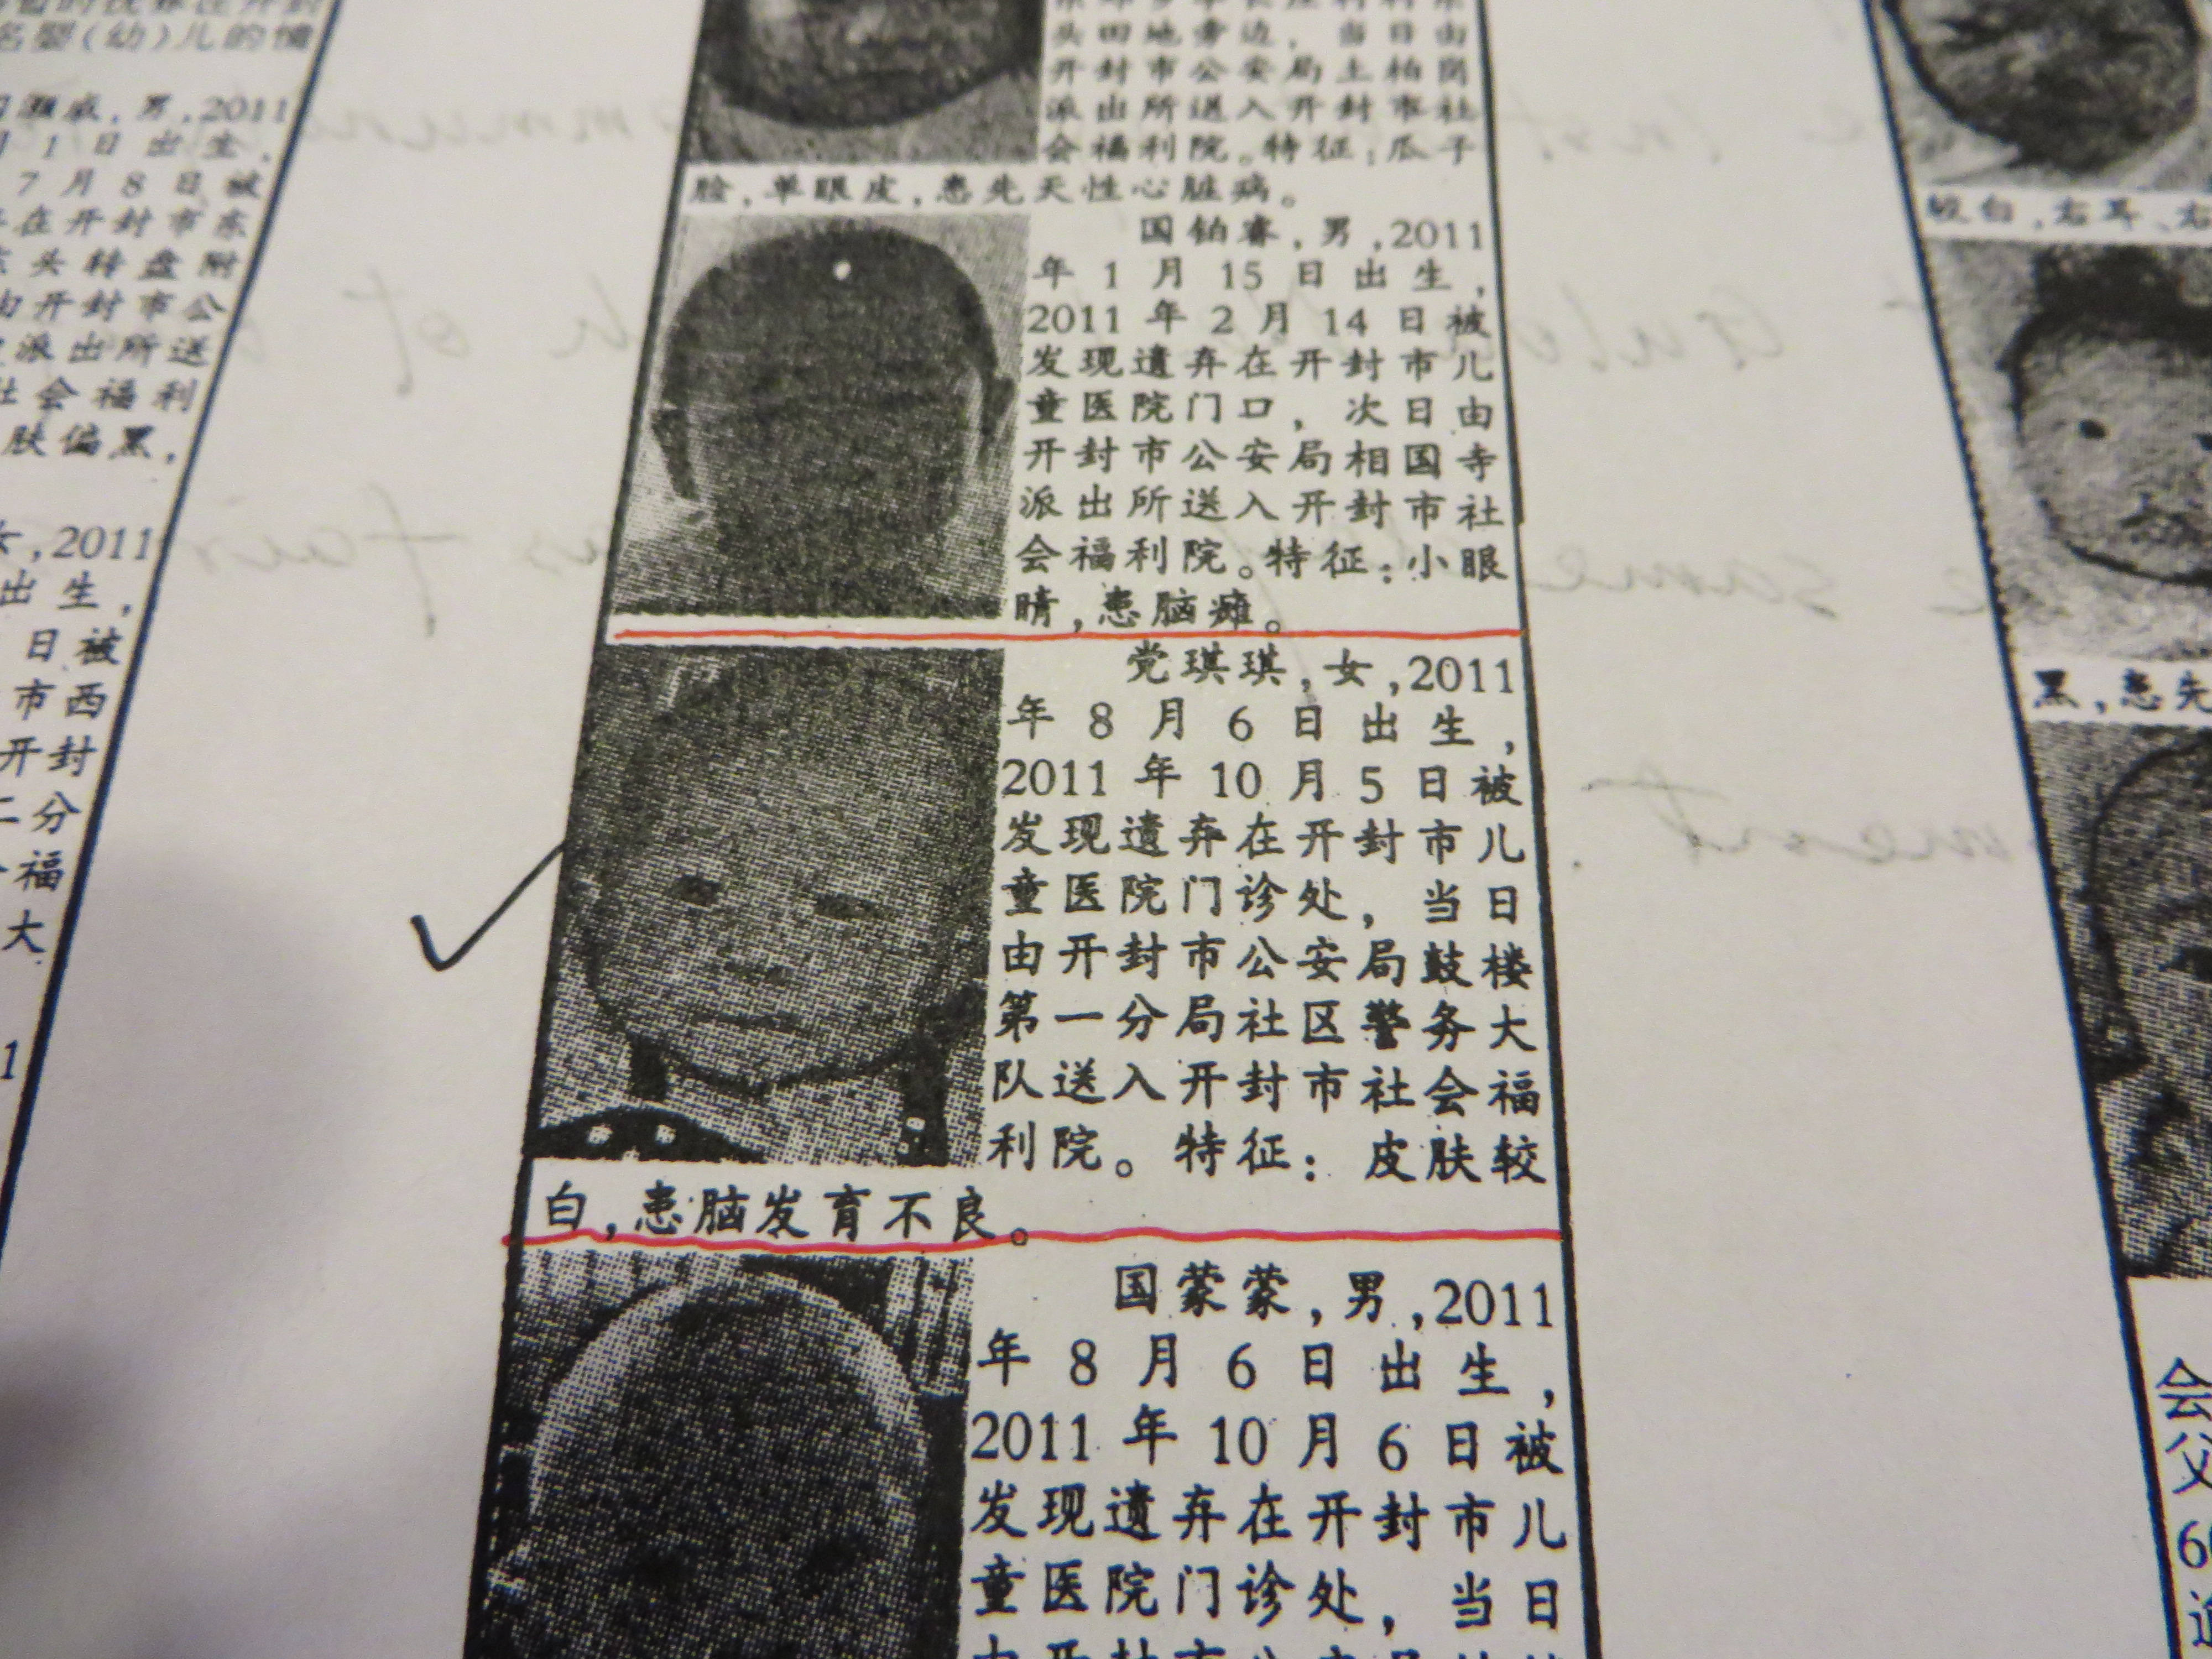 名婴(幼)儿的情
男,2011
月1日出生,
7月8日被
在开封市东
头转盘附
由开封市公
派出所送
社会福利
肤偏黑,
女,2011
出生,
日被
市西
开封
二分
福
大
1
头田地旁边,当日由
开封市公安局土柏岗
派出所送入开封市社
会福利院。特征:瓜子
脸,单眼皮,患先天性心脏病。
国铂睿,男,2011
年1月15日出生,
2011年2月14日被
发现遗弃在开封市儿
童医院门口,次日由
开封市公安局相国寺
派出所送入开封市社
会福利院。特征:小眼
睛,患脑瘫。
党琪琪,女,2011
年8月6日出生,
2011年10月5日被
发现遗弃在开封市儿
童医院门诊处,当日
由开封市公安局鼓楼
第一分局社区警务大
队送入开封市社会福
利院。特征:皮肤较
白,患脑发育不良。
国蒙蒙,男,2011
年8月6日出生,
2011年10月6日被
发现遗弃在开封市儿
童医院门诊处,当日
白,右耳、右
黑,患先
会
父
6